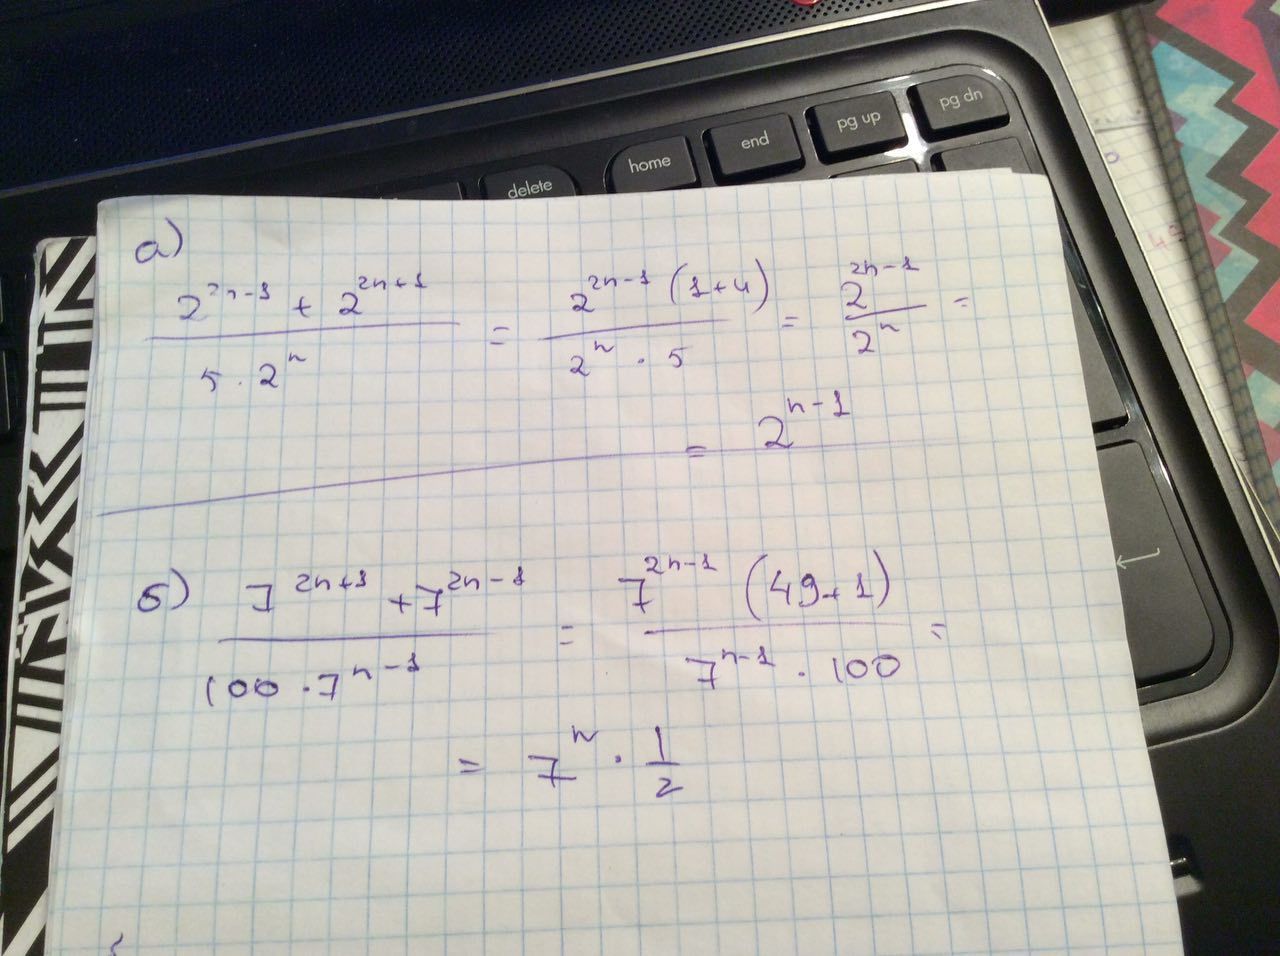 delete home end pg up pg dn
а)
(2^{2n-1} + 2^{2n+1}) / (5 · 2^n) = (2^{2n-1} (1+4)) / (2^n · 5) = 2^{2n-1} / 2^n =
= 2^{n-1}
б) (7^{2n+1} + 7^{2n-1}) / (100 · 7^{n-1}) = (7^{2n-1} (49+1)) / (7^{n-1} · 100) =
= 7^n · 1/2